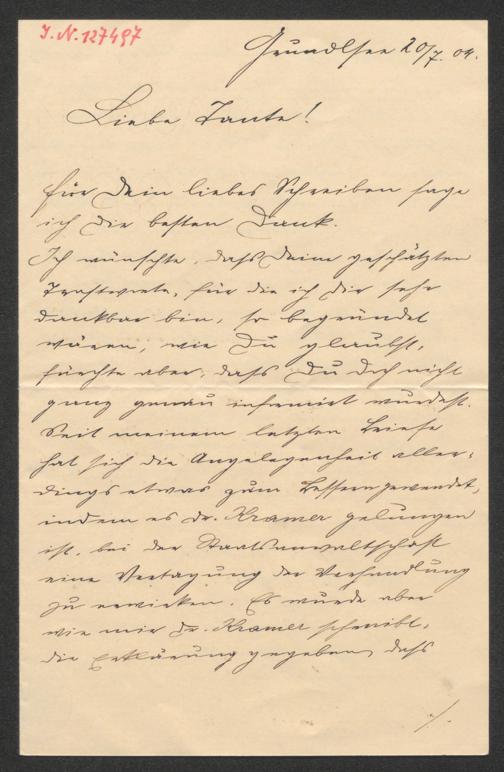 I. N. 127497
Grundlsee 20/7. 04.
Liebe Tante!
für Dein liebes Schreiben sage
ich Dir besten Dank.
Ich wünschte, dass Deine geschätzten
Trostworte, für die ich Dir sehr
dankbar bin, so begründet
wären, wie Du glaubst,
fürchte aber, dass Du doch nicht
ganz genau informirt wurdest.
Seit meinem letzten Briefe
hat sich die Angelegenheit aller-
dings etwas zum Bessern gewendet,
indem es Dr. Kramer gelungen
ist, bei der Staatsanwaltschaft
eine Vertagung der Verhandlung
zu erwirken. Es wurde aber
wie mir Dr. Kramer schreibt,
die Erklärung gegeben, dass
./.